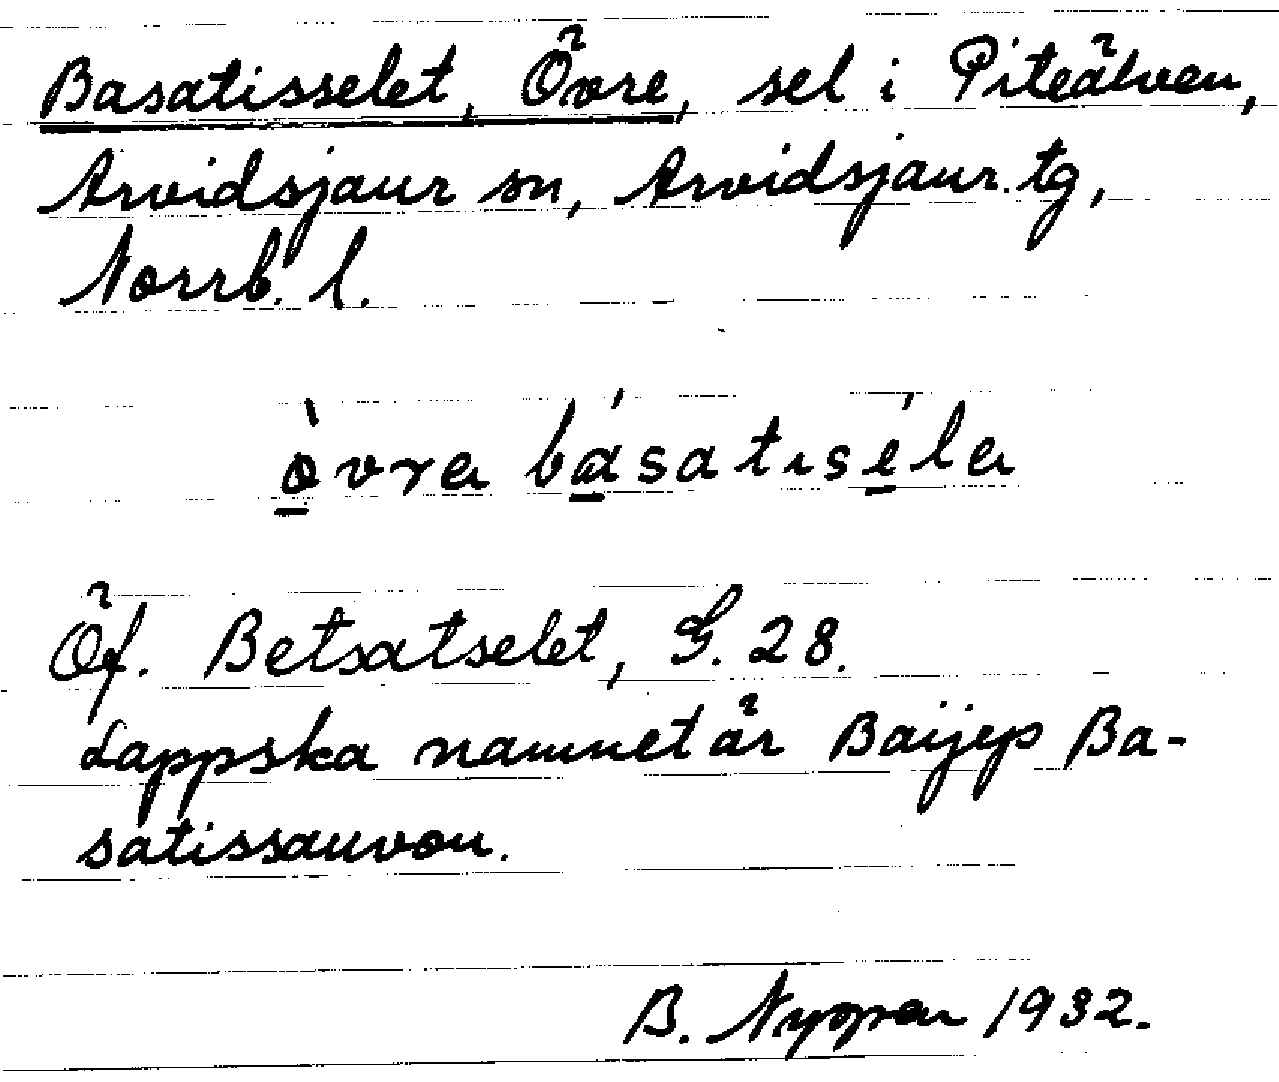 Basatisselet, Övre, sel i Piteälven,
Arvidsjaur sn, Arvidsjaur tg,
Norrb. l.
òvra básatiséla
Öf. Betsatselet, G. 28.
Lappska namnet är Baijep Ba-
satissauvon.
B. 1932.